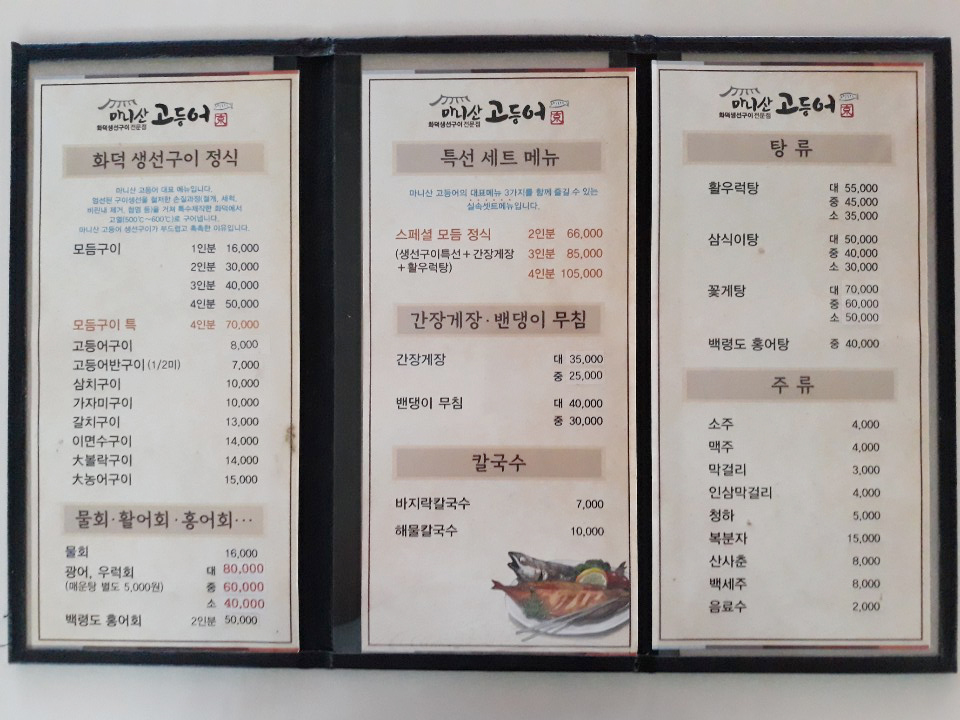 마니산 고등어
화덕생선구이 전문점
화덕 생선구이 정식
마니산 고등어 대표 메뉴입니다.
엄선된 구이생선을 철저한 손질과정(절개, 세척,
비린내 제거, 염염 등)을 거쳐 특수제작한 화덕에서
고열(500℃~600℃)로 구어냅니다.
마니산 고등어 생선구이가 부드럽고 촉촉한 이유입니다.
모듬구이 1인분 16,000
2인분 30,000
3인분 40,000
4인분 50,000
모듬구이 특 4인분 70,000
고등어구이 8,000
고등어반구이 (1/2미) 7,000
삼치구이 10,000
가자미구이 10,000
갈치구이 13,000
이면수구이 14,000
大볼락구이 14,000
大농어구이 15,000
물회·활어회·홍어회···
물회 16,000
광어, 우럭회 대 80,000
(매운탕 별도 5,000원) 중 60,000
소 40,000
백령도 홍어회 2인분 50,000
마니산 고등어
화덕생선구이 전문점
특선 세트 메뉴
마니산 고등어의 대표메뉴 3가지를 함께 즐길 수 있는
실속셋트메뉴입니다.
스페셜 모듬 정식 2인분 66,000
(생선구이특선+간장게장 3인분 85,000
+활우럭탕)
4인분 105,000
간장게장·밴댕이 무침
간장게장 대 35,000
중 25,000
밴댕이 무침 대 40,000
중 30,000
칼국수
바지락칼국수 7,000
해물칼국수 10,000
마니산 고등어
화덕생선구이 전문점
탕 류
활우럭탕 대 55,000
중 45,000
소 35,000
삼식이탕 대 50,000
중 40,000
소 30,000
꽃게탕 대 70,000
중 60,000
소 50,000
백령도 홍어탕 중 40,000
주 류
소주 4,000
맥주 4,000
막걸리 3,000
인삼막걸리 4,000
청하 5,000
복분자 15,000
산사춘 8,000
백세주 8,000
음료수 2,000